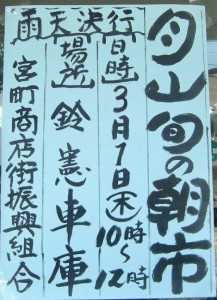 月山旬の朝市
日時 3月1日(木) 10時〜12時
場所 鈴憲車庫
雨天決行
宮町商店街振興組合